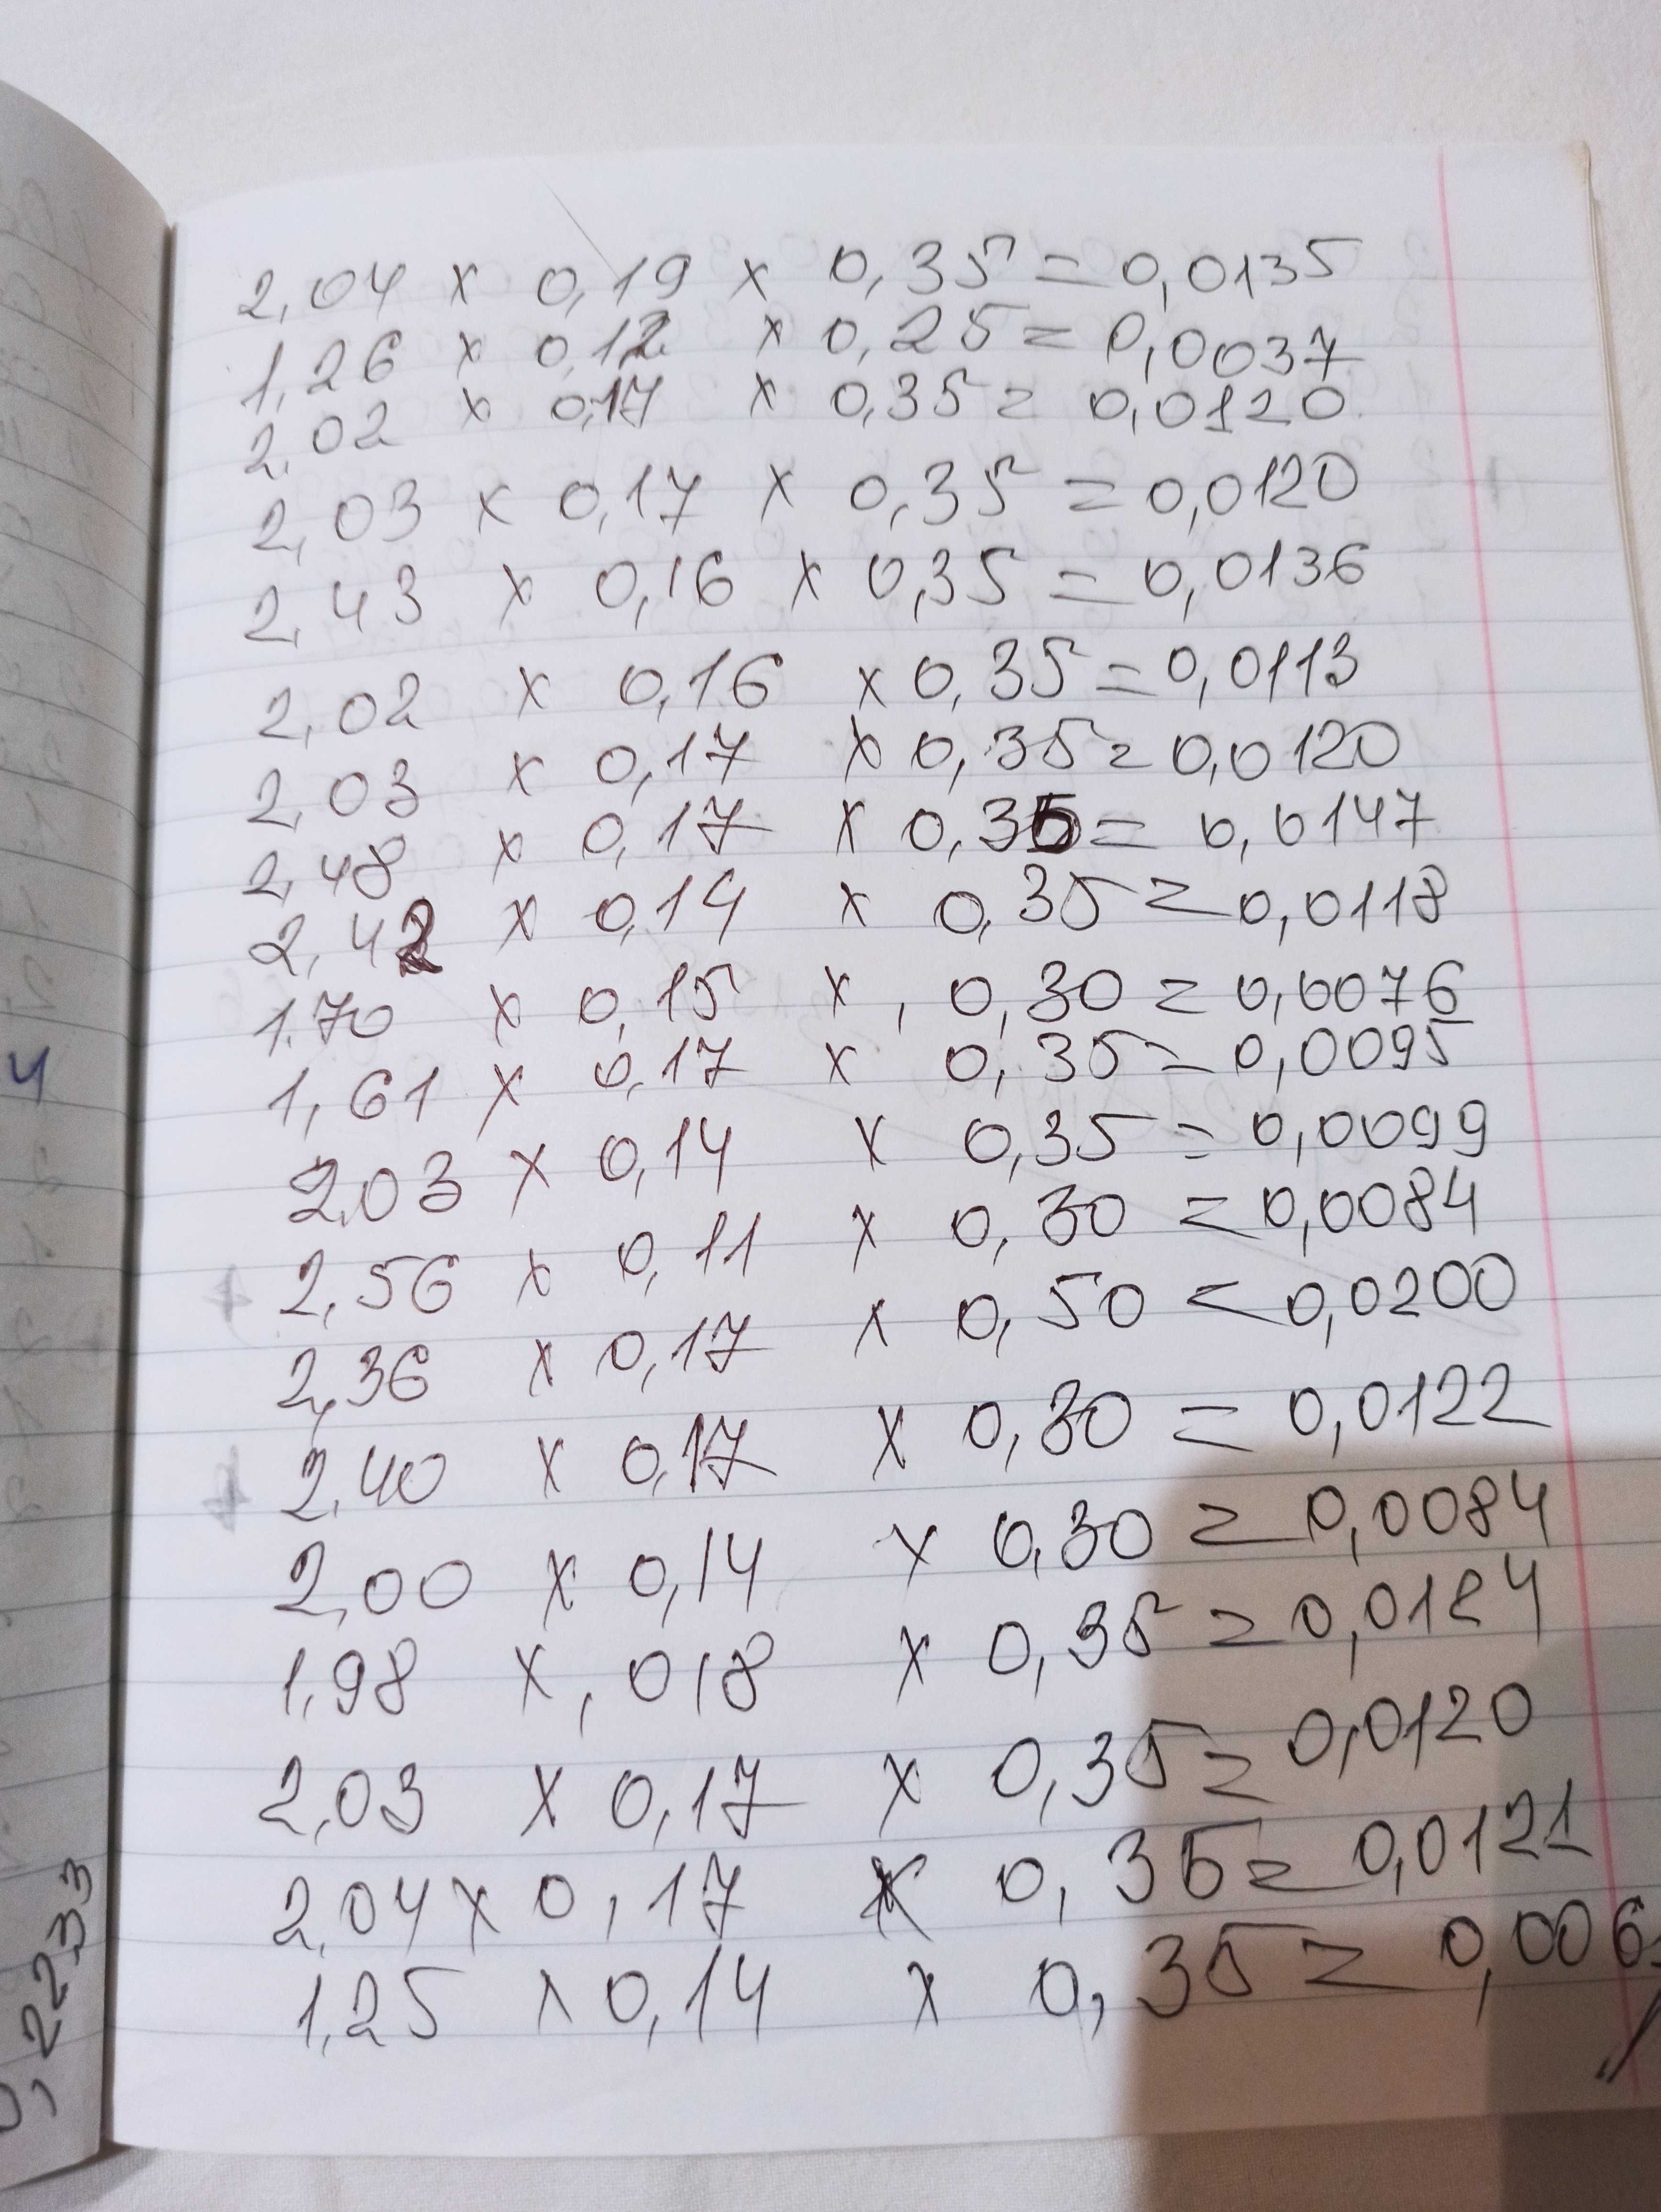 2,04 x 0,19 x 0,35 = 0,0135
1,26 x 0,12 x 0,25 = 0,0037
2,02 x 0,17 x 0,35 = 0,0120
2,03 x 0,17 x 0,35 = 0,0120
2,43 x 0,16 x 0,35 = 0,0136
2,02 x 0,16 x 0,35 = 0,0113
2,03 x 0,17 x 0,35 = 0,0120
2,48 x 0,17 x 0,35 = 0,0147
2,42 x 0,14 x 0,35 = 0,0118
1.70 x 0,15 x , 0,30 = 0,0076
1,61 x 0,17 x 0,35 = 0,0095
2,03 x 0,14 x 0,35 = 0,0099
2,56 x 0,11 x 0,30 = 0,0084
2,36 x 0,17 x 0,50 = 0,0200
2,40 x 0,17 x 0,30 = 0,0122
2,00 x 0,14 x 0,30 = 0,0084
1,98 x , 0,18 x 0,35 = 0,0124
2,03 x 0,17 x 0,35 = 0,0120
2,04 x 0,17 x 0,35 = 0,0121
1,25 x 0,14 x 0,35 = 0,006
4
0,2233